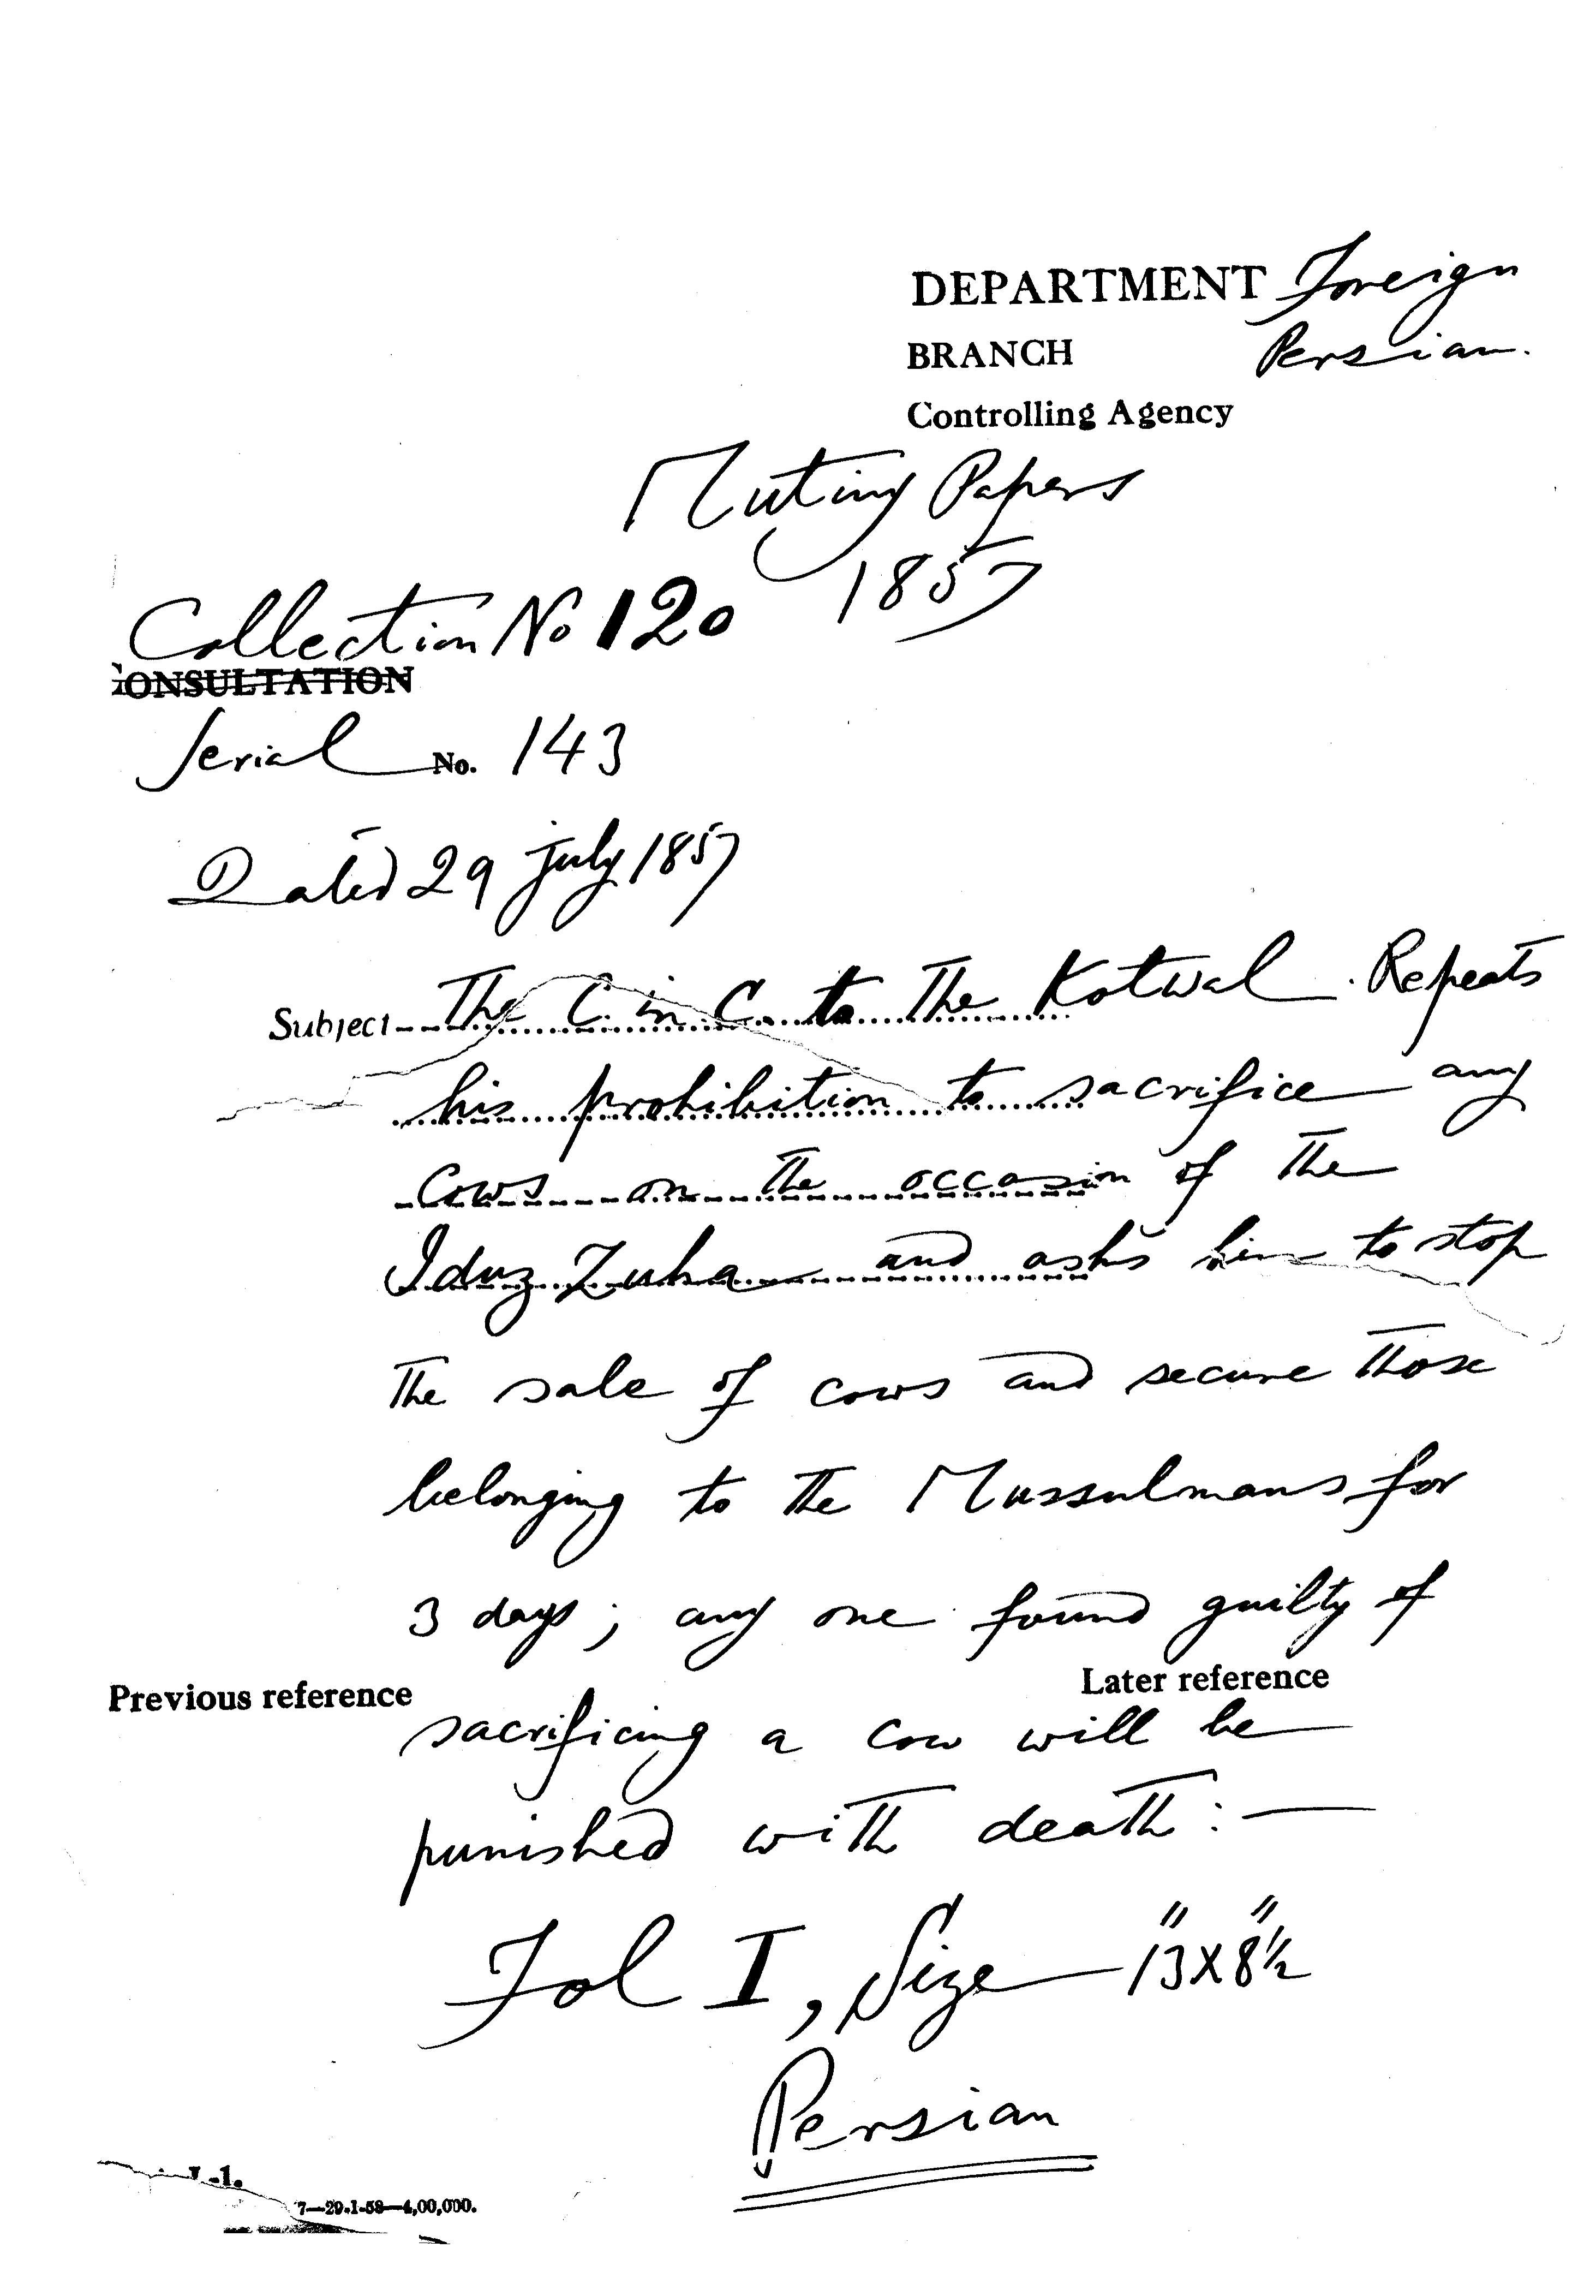 DEPARTMENT Foreign
BRANCH Persian.
Controlling Agency
Mutiny Papers
1857
Collection No 120
CONSULTATION
Serial No. 143
Dated 29 July 1857
Subject The C. in C. to The Kotwal. Repeats
his prohibition to sacrifice any
Cows on the occasion of the
Iduz Zuha and asks him to stop
The sale of cows and secure those
belonging to the Mussulmans for
3 days; any one found guilty of
Previous reference Later reference
sacrificing a cow will be
punished with death:—
Fol I, Size 13"X8½"
Persian
-1.
7—29-1-58—4,00,000.